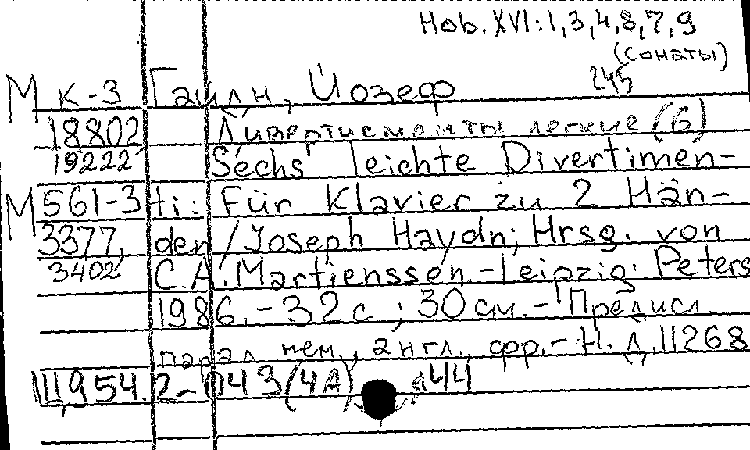 Hob. XVI: 1, 3, 4, 8, 7, 9
(сонаты)
245
М к-3 Гайдн, Йозеф
18802 Дивертисменты легкие (6)
19222 Sechs leichte Divertimen-
М 561-3 ti: Für Klavier zu 2 Hän-
3377, den / Joseph Haydn; Hrsg. von
3402 C. A. Martienssen.- Leipzig: Peters
1986.- 32 с ; 30 см.- Предисл.
парал нем., англ., фр.- Н. Д. 11268
Ш954.2-043(4А) 44